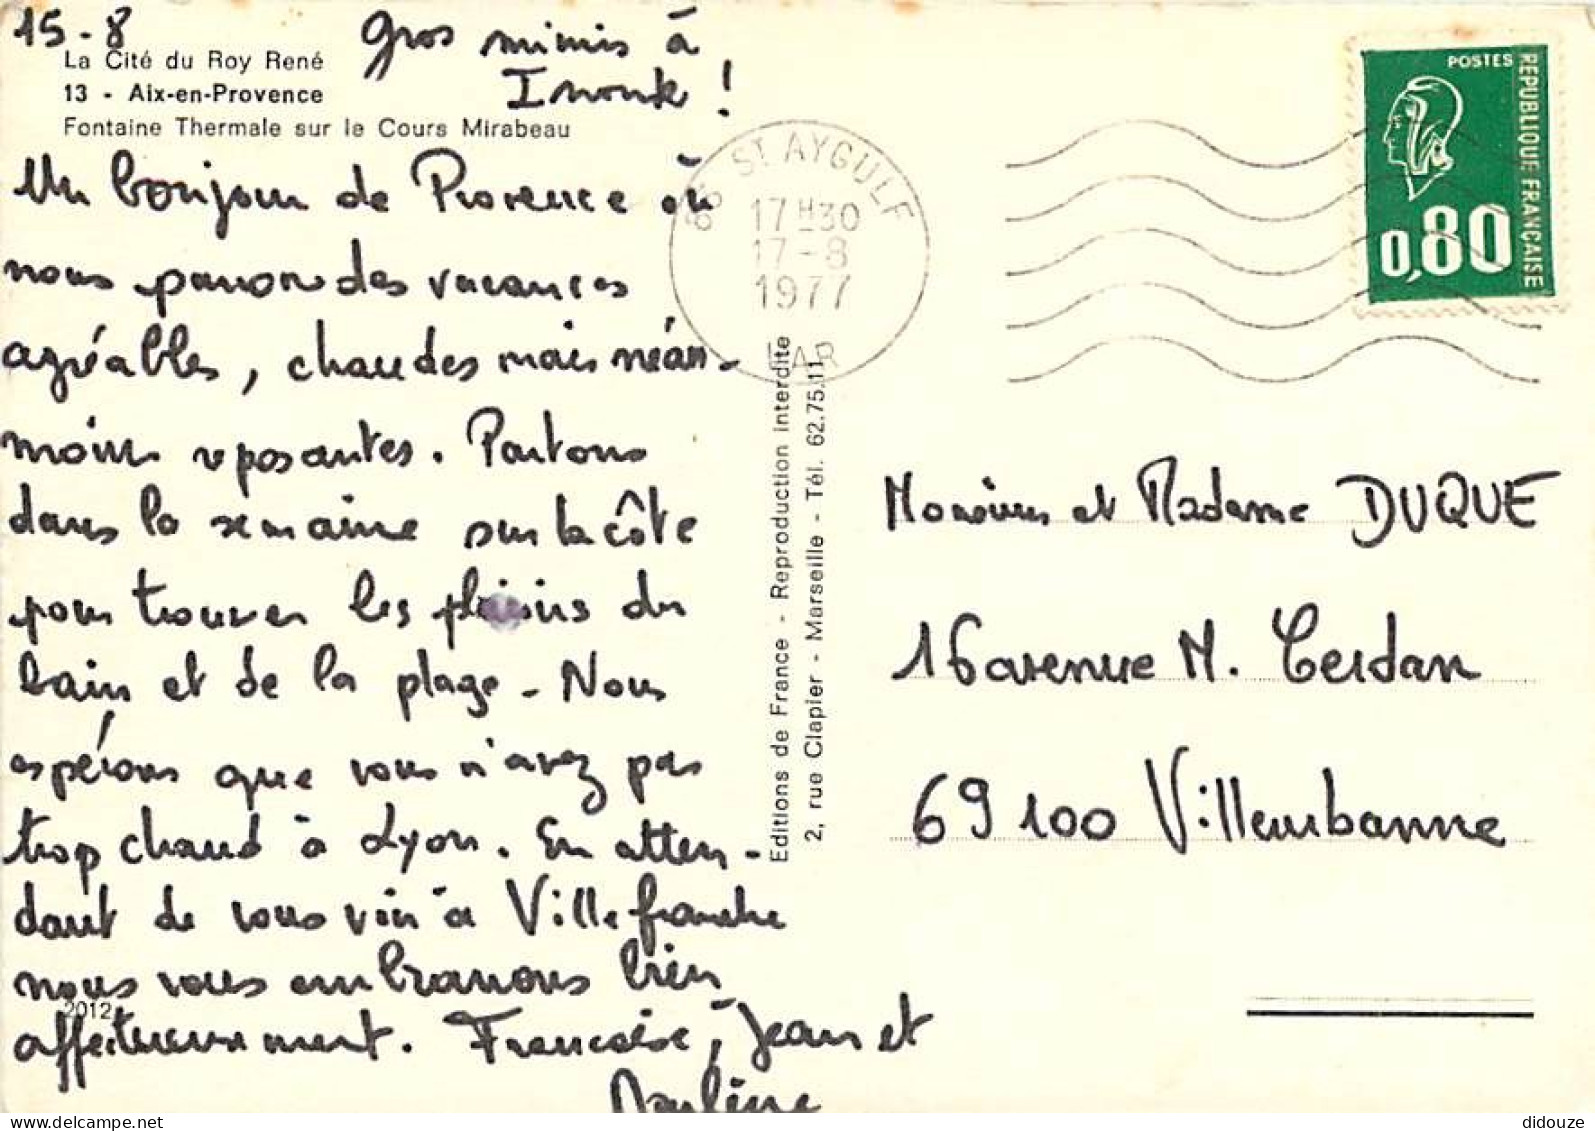 15-8 Gros mimis à
!
La Cité du Roy René
13 - Aix-en-Provence
Fontaine Thermale sur le Cours Mirabeau
Un bonjour de Provence où
nous passons des vacances
agréables, chaudes mais néan-
moins reposantes. Partons
dans la semaine sur la côte
pour trouver les plaisirs du
bain et de la plage - Nous
espérons que vous n'avez pas
trop chaud à Lyon. En atten-
dant de vous voir à Villefranche
nous vous embrassons bien
affectueusement. Françoise, Jean et
2012
83 ST AYGULF
17H30
17-8
1977
VAR
Editions de France - Reproduction interdite
2, rue Clapier - Marseille - Tél. 62.75.11
POSTES
REPUBLIQUE FRANÇAISE
0,80
Monsieur et Madame DUQUE
16 avenue M. Cerdan
69100 Villeurbanne
didouze